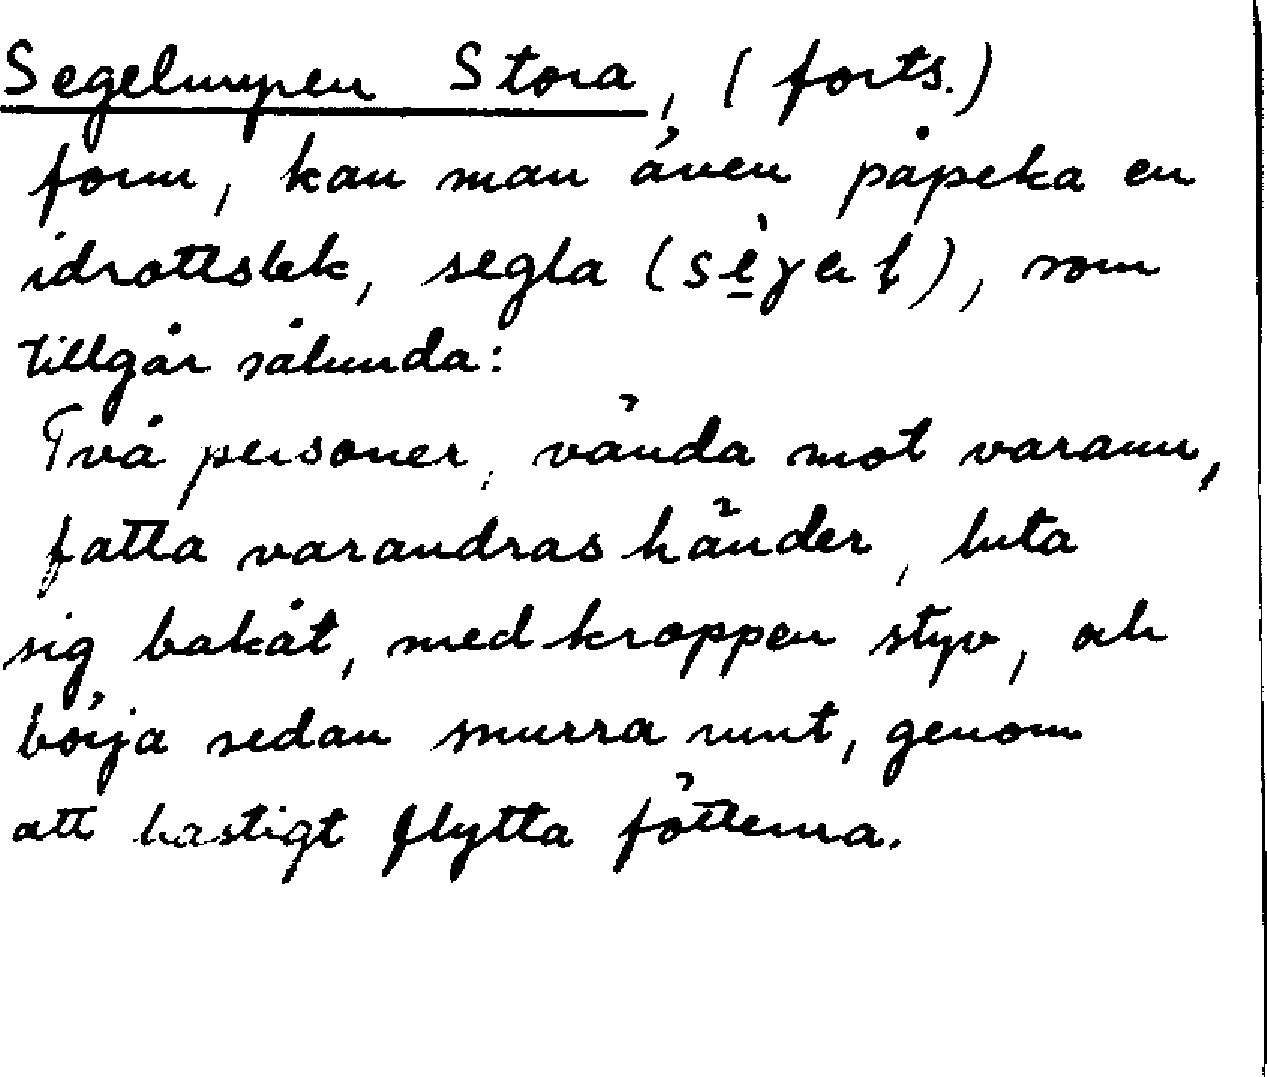 Segelmypen Stora, (forts.)
form, kan man även påpeka en
idrottslek, segla (                ), som
tillgår sålunda:
Två personer, vända mot varann,
fatta varandras händer, luta
sig bakåt, med kroppen styv, och
börja sedan snurra runt, genom
att hastigt flytta fötterna.